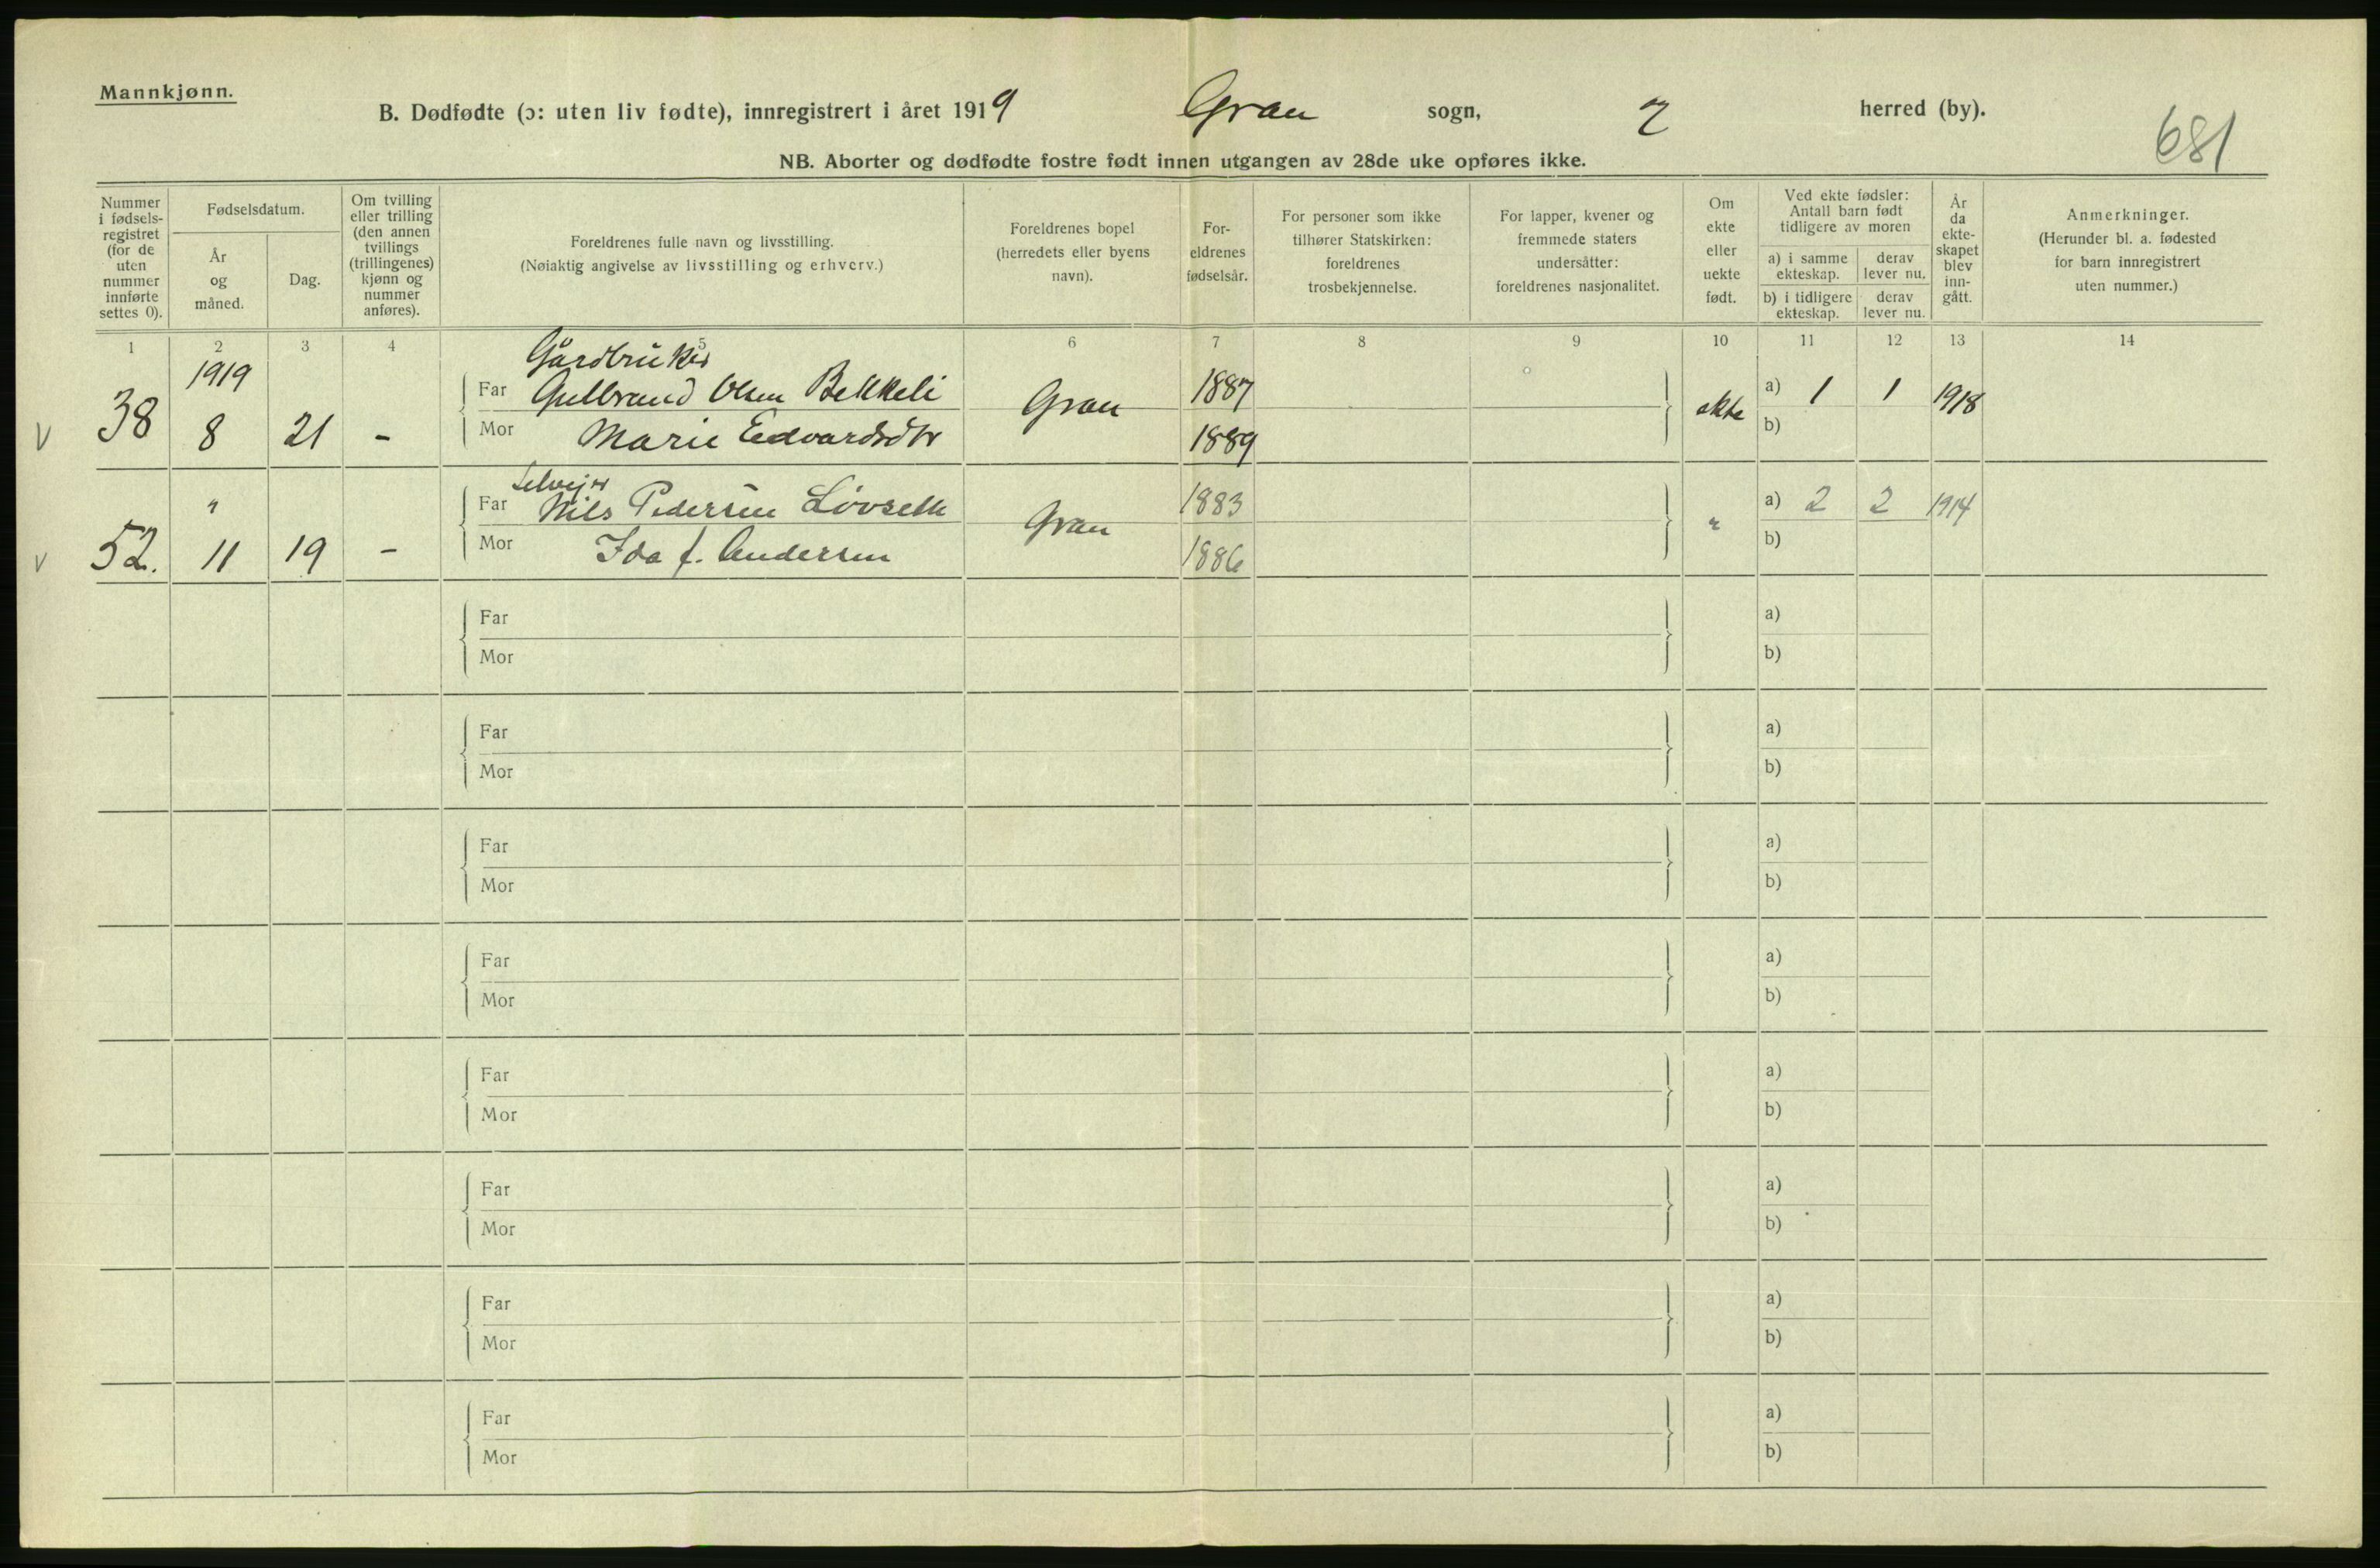 Mannkjønn.
B. Dødfødte (ɔ: uten liv fødte), innregistrert i året 1919 Gran sogn, " herred (by).
681
NB. Aborter og dødfødte fostre født innen utgangen av 28de uke opføres ikke.
Nummer i fødsels-registret (for de uten nummer innførte settes 0).
Fødselsdatum.
År og måned.
Dag.
Om tvilling eller trilling (den annen tvillings (trillingenes) kjønn og nummer anføres).
Foreldrenes fulle navn og livsstilling.
(Nøiaktig angivelse av livsstilling og erhverv.)
Foreldrenes bopel (herredets eller byens navn).
For-eldrenes fødselsår.
For personer som ikke tilhører Statskirken: foreldrenes trosbekjennelse.
For lapper, kvener og fremmede staters undersåtter: foreldrenes nasjonalitet.
Om ekte eller uekte født.
Ved ekte fødsler: Antall barn født tidligere av moren
a) i samme ekteskap. derav lever nu.
b) i tidligere ekteskap. derav lever nu.
År da ekte-skapet blev inn-gått.
Anmerkninger.
(Herunder bl. a. fødested for barn innregistrert uten nummer.)
1 2 3 4 5 6 7 8 9 10 11 12 13 14
1919 Gårdbruker
V 38 8 21 - Far Gulbrand Olsen Bekkeli Gran 1887 ekte a) 1 1 1918
Mor Marie Edvardsdtr 1889 b)
Selvejer
V 52. " 11 19 - Far Nils Pedersen Lövseth Gran 1883 " a) 2 2 1914
Mor Ida f. Andersen 1886 b)
Far a)
Mor b)
Far a)
Mor b)
Far a)
Mor b)
Far a)
Mor b)
Far a)
Mor b)
Far a)
Mor b)
Far a)
Mor b)
Far a)
Mor b)